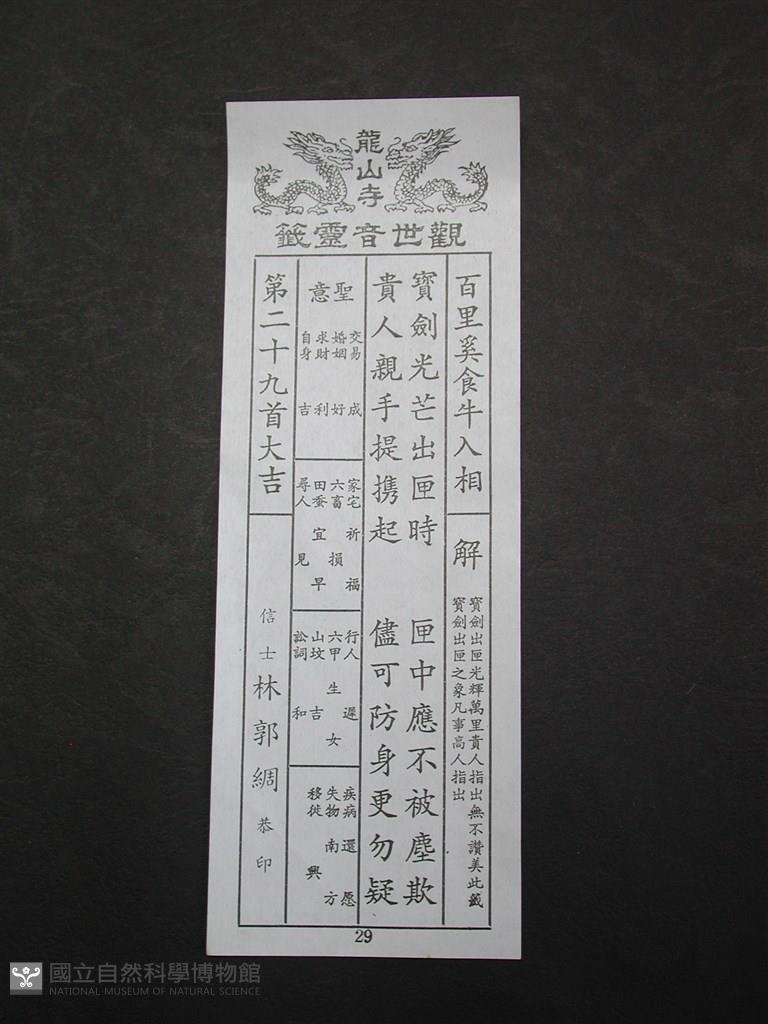 龍山寺
觀世音靈籤
百里奚食牛入相
解
寶劍出匣光輝萬里貴人指出無不讚美此籤
寶劍出匣之象凡事高人指出
寶劍光芒出匣時 匣中應不被塵欺
貴人親手提携起 儘可防身更勿疑
聖意
交易 成
婚姻 好
求財 利
自身 吉
家宅 祈福
六畜 損
田蚕 宜早
尋人 見
行人 遲
六甲 生女
山坟 吉
訟詞 和
疾病 還愿
失物 南方
移徙 興
第二十九首大吉
信士林郭綢恭印
29
國立自然科學博物館
NATIONAL MUSEUM OF NATURAL SCIENCE